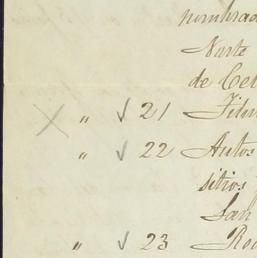 nombrad
Norte
de Cel
" √ 21
" √ 22 Autos
sitios
San
" √ 23